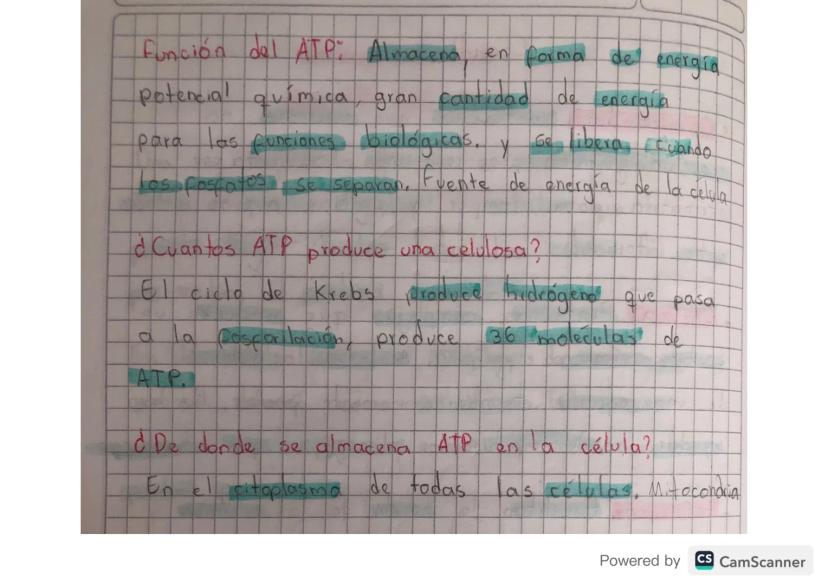 Función del ATP: Almacena, en forma de energía
potencial química, gran cantidad de energía
para las funciones biológicas. y se libera cuando
los fosfatos se separan. Fuente de energía de la célula
¿Cuantos ATP produce una celulosa?
El ciclo de Krebs produce hidrógeno que pasa
a la fosforilación, produce 36 moléculas de
ATP.
¿De donde se almacena ATP en la célula?
En el citoplasma de todas las células. Mitocondria
Powered by CS CamScanner